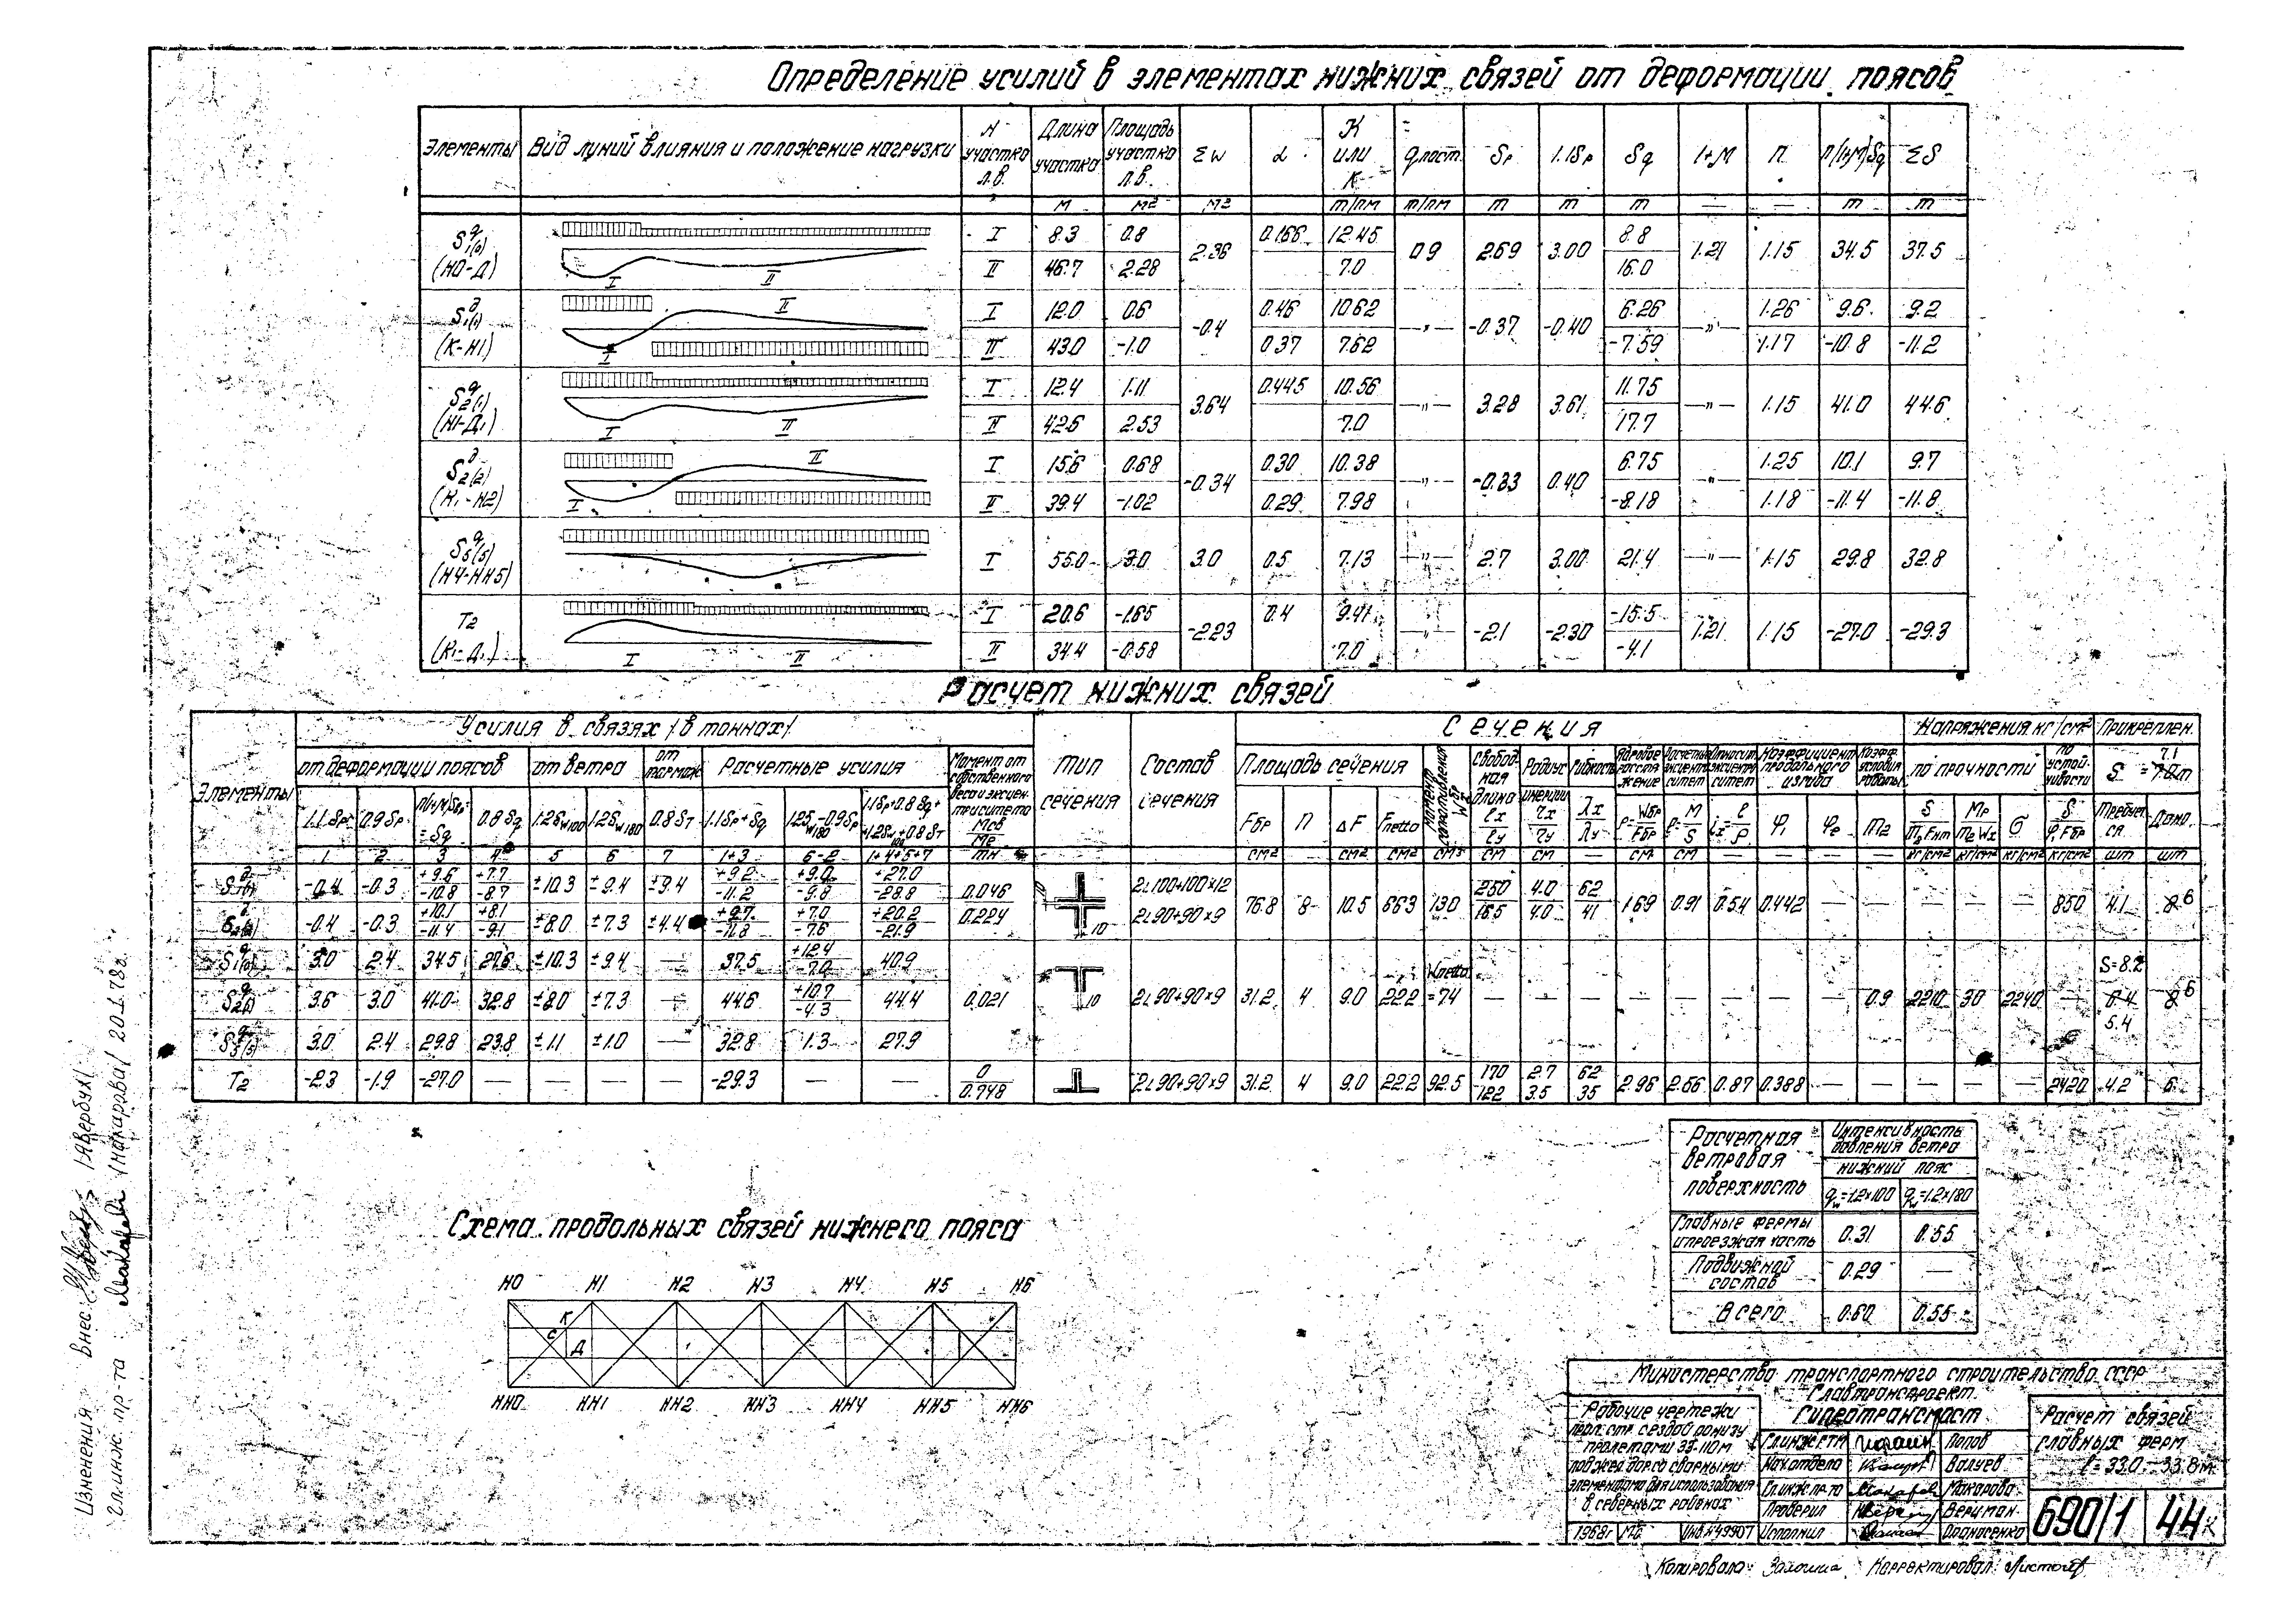 Определение усилий в элементах нижних связей от деформации поясов
Элементы | Вид линий влияния и положение нагрузки | N участка л.в. | Длина участка | Площадь участка л.в. | Σw | α | К или к | q пост. | Sp | 1.1Sp | Sq | 1+М | П | П(1+М)Sq | ΣS
м | м² | м² | т/пм | т/пм | т | т | т | — | — | т | т
S 1(0) (Н0-Д) | I | 8.3 | 0.8 | 2.36 | 0.166 | 12.45 | 0.9 | 2.69 | 3.00 | 8.8 | 1.21 | 1.15 | 34.5 | 37.5
II | 46.7 | 2.28 | 7.0 | 16.0
S 1(1) (К-Н1) | I | 12.0 | 0.6 | -0.4 | 0.46 | 10.62 | —"— | -0.37 | -0.40 | 6.26 | —"— | 1.26 | 9.6 | 9.2
II | 43.0 | -1.0 | 0.37 | 7.62 | -7.59 | 1.17 | -10.8 | -11.2
S 2(1) (Н1-Д₁) | I | 12.4 | 1.11 | 3.64 | 0.445 | 10.56 | —"— | 3.28 | 3.61 | 11.75 | —"— | 1.15 | 41.0 | 44.6
II | 42.6 | 2.53 | 7.0 | 17.7
S 2(2) (К₁-Н2) | I | 15.6 | 0.68 | -0.34 | 0.30 | 10.38 | —"— | -0.33 | 0.40 | 6.75 | —"— | 1.25 | 10.1 | 9.7
II | 39.4 | -1.02 | 0.29 | 7.98 | -8.18 | 1.18 | -11.4 | -11.8
S 5(5) (Н4-НН5) | I | 55.0 | 3.0 | 3.0 | 0.5 | 7.13 | —"— | 2.7 | 3.00 | 21.4 | —"— | 1.15 | 29.8 | 32.8
Т2 (К₁-Д₁) | I | 20.6 | -1.65 | -2.23 | 0.4 | 9.41 | —"— | -2.1 | -2.30 | -15.5 | 1.21 | 1.15 | -27.0 | -29.3
II | 34.4 | -0.58 | 7.0 | -4.1
Расчет нижних связей
Элементы | Усилия в связях /в тоннах/ | Тип сечения | Состав сечения | Сечения | Напряжения кг/см² | Прикреплен.
от деформации поясов | от ветра | от тормож. | Расчетные усилия | Момент от собственного веса и эксцентриситета | Площадь сечения | Момент сопротивления Wбр | Свободная длина | Радиус инерции | Гибкость | Ядровое расстояжение | Расчетный эксцентриситет | Относит. эксцентриситет | Коэффициент продольного изгиба | Коэфф. условия работы | по прочности | по устойчивости | S = 7.0т 7.1
1.1Sp | 0.9Sp | П(1+М)Sp = Sq | 0.8Sq | 1.2Sw100 | 1.2Sw180 | 0.8Sт | 1.1Sp+Sq | 1.2Sw180-0.9Sp | 1.1Sp+0.8Sq+1.2Sw100+0.8Sт | Мсв Ме | Fбр | П | ΔF | Fнетто | ℓx ℓy | rx ry | λx λy | ρ=Wбр/Fбр | M/S | φ₁ | φ₂ | m₂ | S/m₂Fнт | Mр/m₂Wx | σ | S/φ₁Fбр | Требует. | Допо.
1 | 2 | 3 | 4 | 5 | 6 | 7 | 1+3 | 6-2 | 1+4+5+7 | тм | см² | — | см² | см² | см³ | см | см | — | см | см | — | — | — | — | кг/см² | кг/см² | кг/см² | кг/см² | шт | шт
S 1(1) | -0.4 | -0.3 | +9.6 -10.8 | +7.7 -8.7 | ±10.3 | ±9.4 | ±9.4 | +9.2 -11.2 | +9.0 -9.8 | +27.0 -28.8 | 0.046 0.224 | 10 | 2∟100×100×12 2∟90×90×9 | 76.8 | 8 | 10.5 | 66.3 | 130 | 250 165 | 4.0 4.0 | 62 41 | 1.69 | 0.91 | 0.54 | 0.442 | — | — | — | — | — | 850 | 4.1 | 8 6
S 2(2) | -0.4 | -0.3 | +10.1 -11.4 | +8.1 -9.1 | ±8.0 | ±7.3 | ±4.4 | +9.7 -11.8 | +7.0 -7.6 | +20.2 -21.9
S 1(0) | 3.0 | 2.4 | 34.5 | 27.6 | ±10.3 | ±9.4 | — | 37.5 | +12.4 -7.0 | 40.9
S 2(1) | 3.6 | 3.0 | 41.0 | 32.8 | ±8.0 | ±7.3 | — | 44.6 | +10.7 -4.3 | 44.4 | 0.021 | 10 | 2∟90×90×9 | 31.2 | 4 | 9.0 | 22.2 | Wнетто =74 | — | — | — | — | — | — | — | — | 0.9 | 2210 | 30 | 2240 | — | S=8.2 6.4 5.4 | 8 6
S 5(5) | 3.0 | 2.4 | 29.8 | 23.8 | ±1.1 | ±1.0 | — | 32.8 | 1.3 | 27.9
Т2 | -2.3 | -1.9 | -27.0 | — | — | — | — | -29.3 | — | — | 0 0.748 | 2∟90×90×9 | 31.2 | 4 | 9.0 | 22.2 | 92.5 | 170 122 | 2.7 3.5 | 62 35 | 2.96 | 2.56 | 0.87 | 0.388 | — | — | — | — | — | 2420 | 4.2 | 6
Расчетная ветровая поверхность | Интенсивность давления ветра
нижний пояс
qw=1.2×100 | qw=1.2×180
Главные фермы и проезжая часть | 0.31 | 0.55
Подвижной состав | 0.29 | —
Всего | 0.60 | 0.55
Схема продольных связей нижнего пояса
Н0 Н1 Н2 Н3 Н4 Н5 Н6
К
С
Д
НН0 НН1 НН2 НН3 НН4 НН5 НН6
Министерство транспортного строительства СССР
Главтранспроект
Гипротрансмост
Рабочие чертежи
прол. стр. с ездой понизу
пролетами 33-110 м
под жел. дор. со сварными
элементами для использования
в северных районах
Гл.инж.ГТМ Попов
Нач.отдела Валуев
Гл.инж.пр-та Макарова
Проверил Верцман
1968г. Инв.№49907 Исполнил
Расчет связей
главных ферм
ℓ=33.0-33.8м
690/1
44к
Копировала: Корректировал:
Изменения внес: /Авербух/
Гл.инж.пр-та /Макарова/ 20.I.78г.